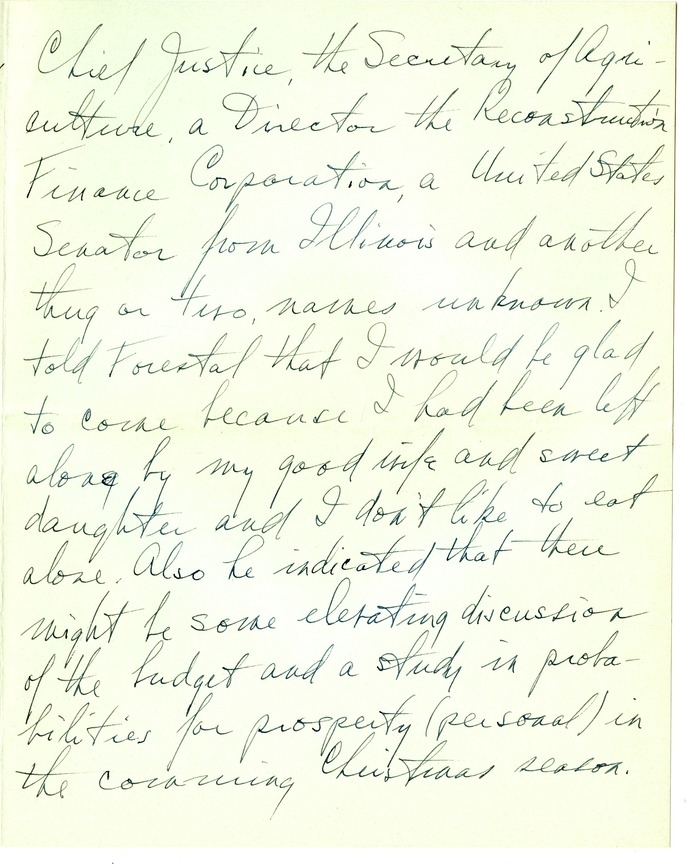 Chief Justice, the Secretary of Agri-
culture, a Director the Reconstruction
Finance Corporation, a United States
Senator from Illinois and another
thug or two, names unknown. I
told Forestal that I would be glad
to come because I had been left
alone by my good wife and sweet
daughter and I don't like to eat
alone. Also he indicated that there
might be some elevating discussion
of the budget and a study in proba-
bilities for prosperty (personal) in
the comming Christmas season.